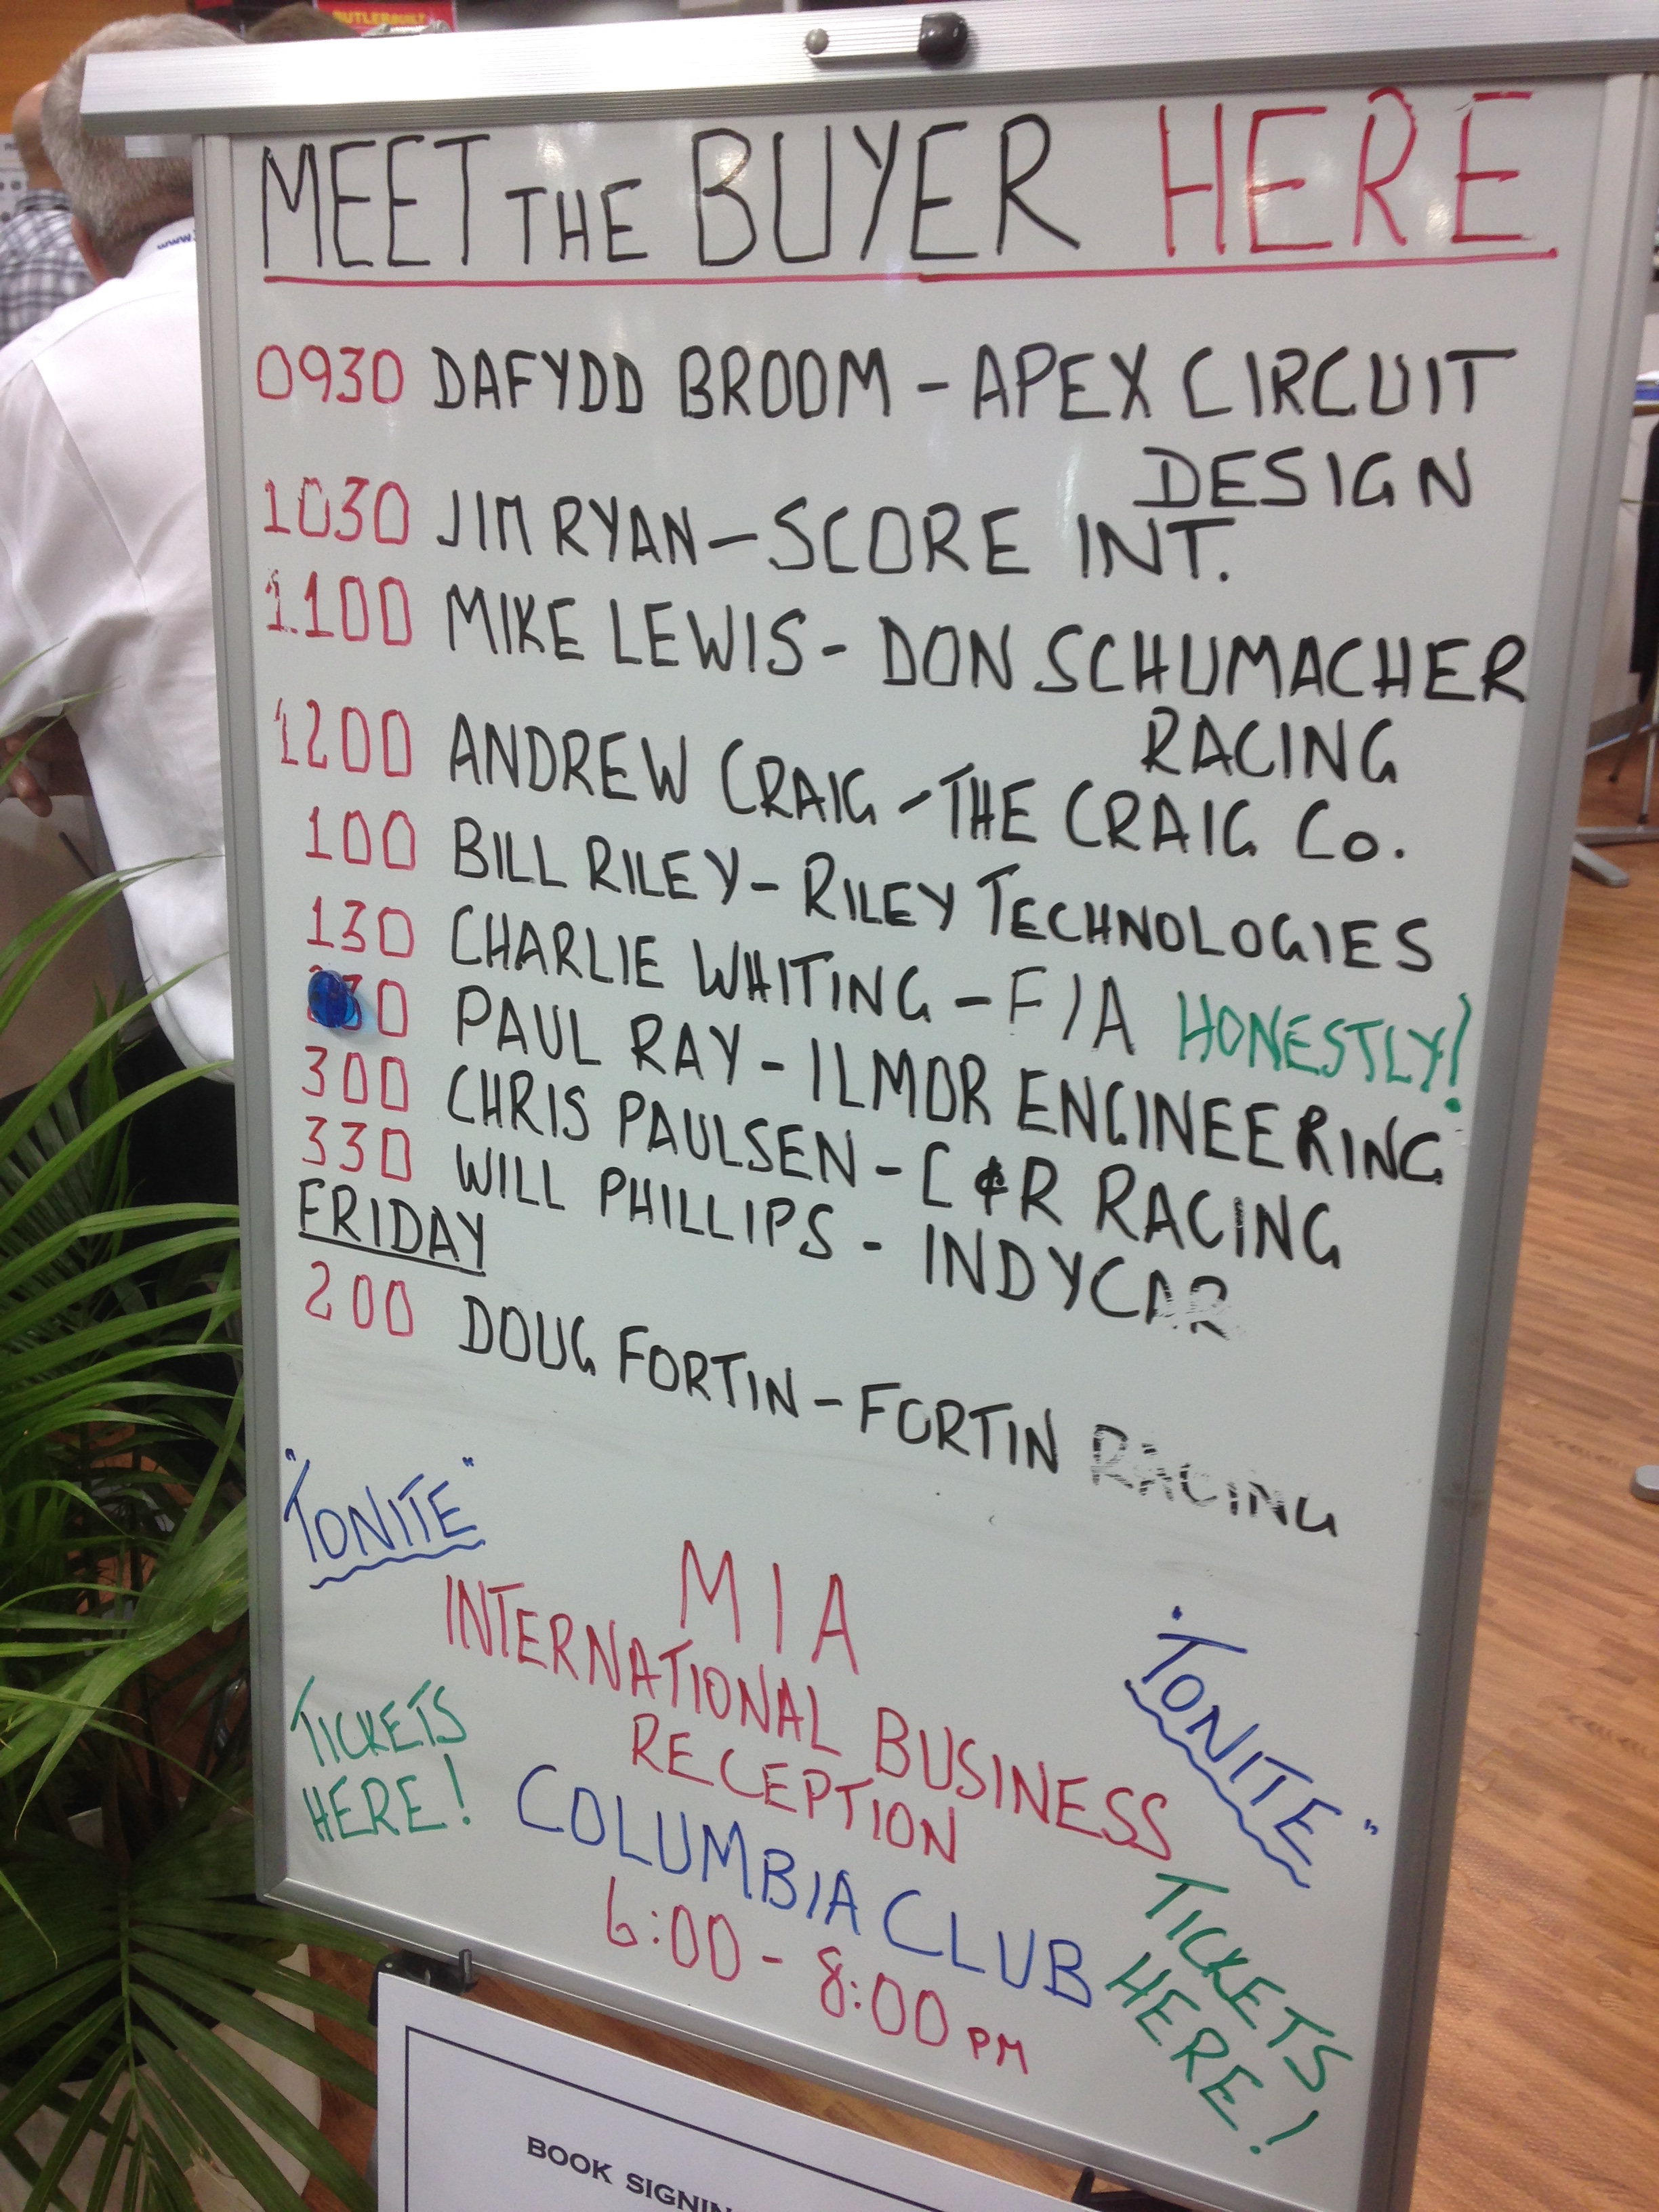 BUTLERBUILT
www.
MEET THE BUYER HERE
0930 DAFYDD BROOM - APEX CIRCUIT
DESIGN
1030 JIM RYAN - SCORE INT.
1100 MIKE LEWIS - DON SCHUMACHER
RACING
1200 ANDREW CRAIG - THE CRAIG Co.
100 BILL RILEY - RILEY TECHNOLOGIES
130 CHARLIE WHITING - FIA HONESTLY!
30 PAUL RAY - ILMOR ENGINEERING
300 CHRIS PAULSEN - C & R RACING
330 WILL PHILLIPS - INDYCAR
FRIDAY
200 DOUG FORTIN - FORTIN RACING
"TONITE"
MIA
INTERNATIONAL BUSINESS
RECEPTION
"TONITE"
TICKETS
HERE!
COLUMBIA CLUB
6:00 - 8:00 PM
TICKETS
HERE!
BOOK SIGNIN